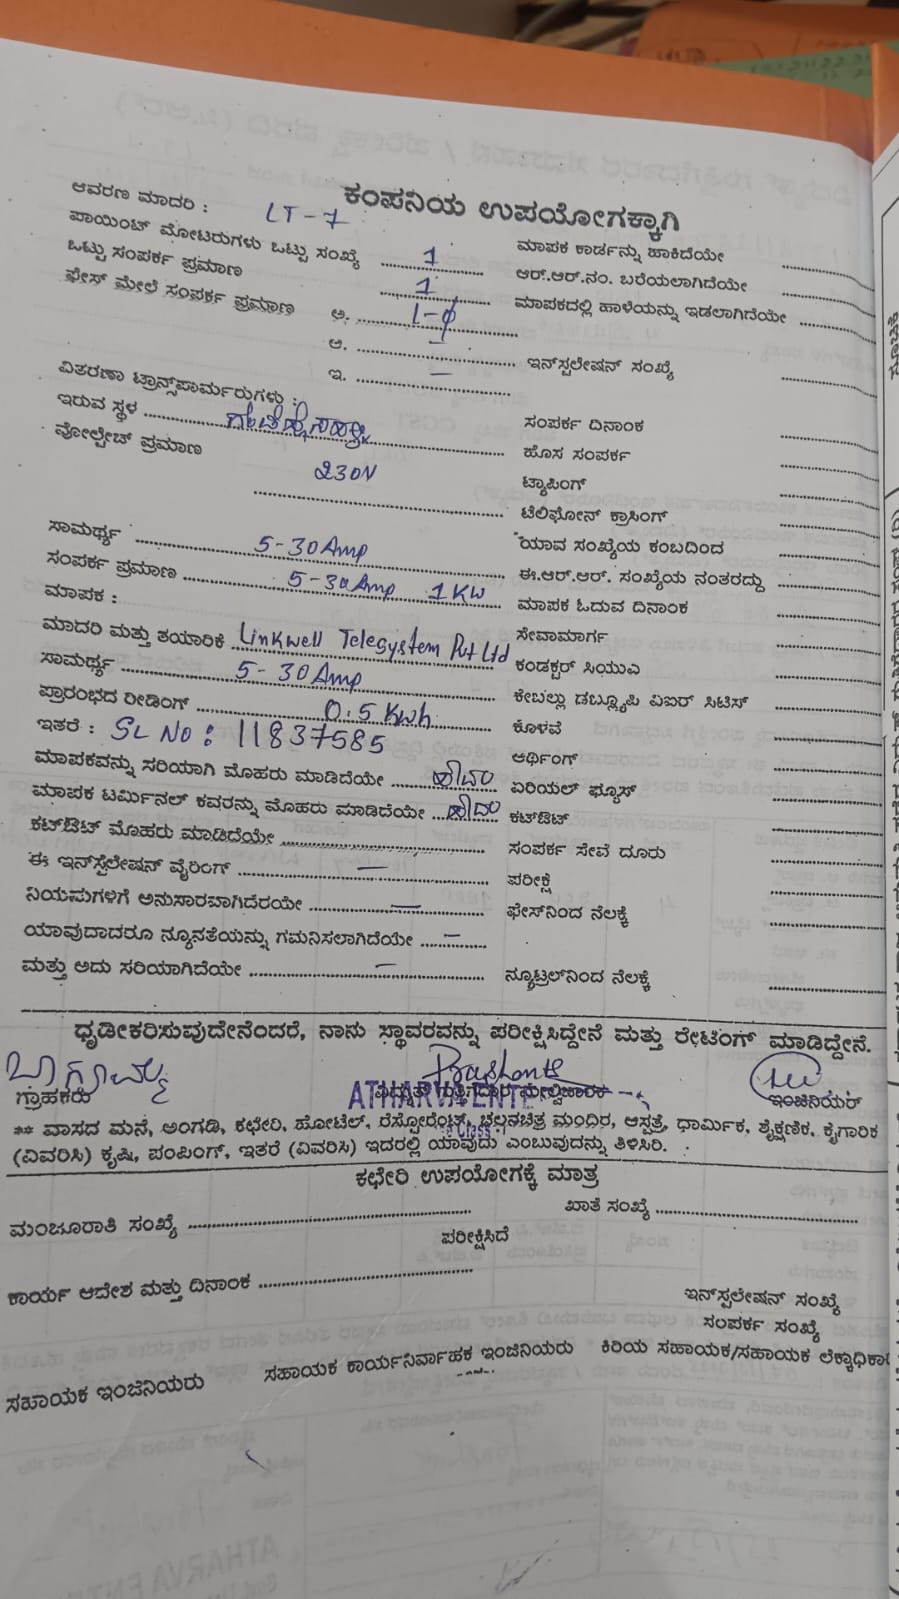 ಕಂಪನಿಯ ಉಪಯೋಗಕ್ಕಾಗಿ
ಆವರಣ ಮಾದರಿ : LT-7
ಪಾಯಿಂಟ್ ಮೋಟರುಗಳು ಒಟ್ಟು ಸಂಖ್ಯೆ 1 ಮಾಪಕ ಕಾರ್ಡನ್ನು ಹಾಕಿದೆಯೇ
ಒಟ್ಟು ಸಂಪರ್ಕ ಪ್ರಮಾಣ 1 ಆರ್.ಆರ್.ನಂ. ಬರೆಯಲಾಗಿದೆಯೇ
ಫೇಸ್ ಮೇಲೆ ಸಂಪರ್ಕ ಪ್ರಮಾಣ ಅ. 1-ф ಮಾಪಕದಲ್ಲಿ ಹಾಳೆಯನ್ನು ಇಡಲಾಗಿದೆಯೇ
ಆ. – ಇನ್‌ಸ್ಪಲೇಷನ್ ಸಂಖ್ಯೆ
ಇ. –
ವಿತರಣಾ ಟ್ರಾನ್ಸ್‌ಪಾರ್ಮರುಗಳು :
ಇರುವ ಸ್ಥಳ ಸಂಪರ್ಕ ದಿನಾಂಕ
ವೋಲ್ಟೇಜ್ ಪ್ರಮಾಣ 230V ಹೊಸ ಸಂಪರ್ಕ
ಟ್ಯಾಪಿಂಗ್
ಟೆಲಿಫೋನ್ ಕ್ರಾಸಿಂಗ್
ಸಾಮರ್ಥ್ಯ 5-30Amp ಯಾವ ಸಂಖ್ಯೆಯ ಕಂಬದಿಂದ
ಸಂಪರ್ಕ ಪ್ರಮಾಣ 5-30Amp 1KW ಈ.ಆರ್.ಆರ್. ಸಂಖ್ಯೆಯ ನಂತರದ್ದು
ಮಾಪಕ : ಮಾಪಕ ಓದುವ ದಿನಾಂಕ
ಮಾದರಿ ಮತ್ತು ತಯಾರಿಕೆ Linkwell Telesystem Pvt Ltd ಸೇವಾಮಾರ್ಗ
ಸಾಮರ್ಥ್ಯ 5-30Amp ಕಂಡಕ್ಟರ್ ಸಿಯುಎ
ಪ್ರಾರಂಭದ ರೀಡಿಂಗ್ 0.5 Kwh ಕೇಬಲ್ಲು ಡಬ್ಲ್ಯೂಪಿ ವಿಐಆರ್ ಸಿಟಿಸ್
ಇತರೆ : SL No : 11837585 ಕೊಳವೆ
ಮಾಪಕವನ್ನು ಸರಿಯಾಗಿ ಮೊಹರು ಮಾಡಿದೆಯೇ ಹೌದು ಆರ್ಥಿಂಗ್
ಮಾಪಕ ಟರ್ಮಿನಲ್ ಕವರನ್ನು ಮೊಹರು ಮಾಡಿದೆಯೇ ಹೌದು ಏರಿಯಲ್ ಫ್ಯೂಸ್
ಕಟ್‌ಔಟ್ ಮೊಹರು ಮಾಡಿದೆಯೇ ಕಟ್‌ಔಟ್
ಈ ಇನ್‌ಸ್ಟಲೇಷನ್ ವೈರಿಂಗ್ – ಸಂಪರ್ಕ ಸೇವೆ ದೂರು
ನಿಯಮಗಳಿಗೆ ಅನುಸಾರವಾಗಿದೆರಯೇ – ಪರೀಕ್ಷೆ
ಯಾವುದಾದರೂ ನ್ಯೂನತೆಯನ್ನು ಗಮನಿಸಲಾಗಿದೆಯೇ – ಫೇಸ್‌ನಿಂದ ನೆಲಕ್ಕೆ
ಮತ್ತು ಅದು ಸರಿಯಾಗಿದೆಯೇ – ನ್ಯೂಟ್ರಲ್‌ನಿಂದ ನೆಲಕ್ಕೆ
ಧೃಡೀಕರಿಸುವುದೇನೆಂದರೆ, ನಾನು ಸ್ಥಾವರವನ್ನು ಪರೀಕ್ಷಿಸಿದ್ದೇನೆ ಮತ್ತು ರೇಟಿಂಗ್ ಮಾಡಿದ್ದೇನೆ.
ಭಾಗ್ಯಮ್ಮ Prashanth
ಗ್ರಾಹಕರು ATHARVA ENTE ಇಂಜಿನಿಯರ್
** ವಾಸದ ಮನೆ, ಅಂಗಡಿ, ಕಛೇರಿ, ಹೋಟೆಲ್, ರೆಸ್ಟೋರೆಂಟ್, ಚಲನಚಿತ್ರ ಮಂದಿರ, ಆಸ್ಪತ್ರೆ, ಧಾರ್ಮಿಕ, ಶೈಕ್ಷಣಿಕ, ಕೈಗಾರಿಕ
(ವಿವರಿಸಿ) ಕೃಷಿ, ಪಂಪಿಂಗ್, ಇತರೆ (ವಿವರಿಸಿ) ಇದರಲ್ಲಿ ಯಾವುದು ಎಂಬುವುದನ್ನು ತಿಳಿಸಿರಿ.
ಕಛೇರಿ ಉಪಯೋಗಕ್ಕೆ ಮಾತ್ರ
ಮಂಜೂರಾತಿ ಸಂಖ್ಯೆ ಖಾತೆ ಸಂಖ್ಯೆ
ಪರೀಕ್ಷಿಸಿದೆ
ಕಾರ್ಯ ಆದೇಶ ಮತ್ತು ದಿನಾಂಕ
ಇನ್‌ಸ್ಪಲೇಷನ್ ಸಂಖ್ಯೆ
ಸಂಪರ್ಕ ಸಂಖ್ಯೆ
ಸಹಾಯಕ ಇಂಜಿನಿಯರು ಸಹಾಯಕ ಕಾರ್ಯನಿರ್ವಾಹಕ ಇಂಜಿನಿಯರು ಕಿರಿಯ ಸಹಾಯಕ/ಸಹಾಯಕ ಲೆಕ್ಕಾಧಿಕಾರಿ